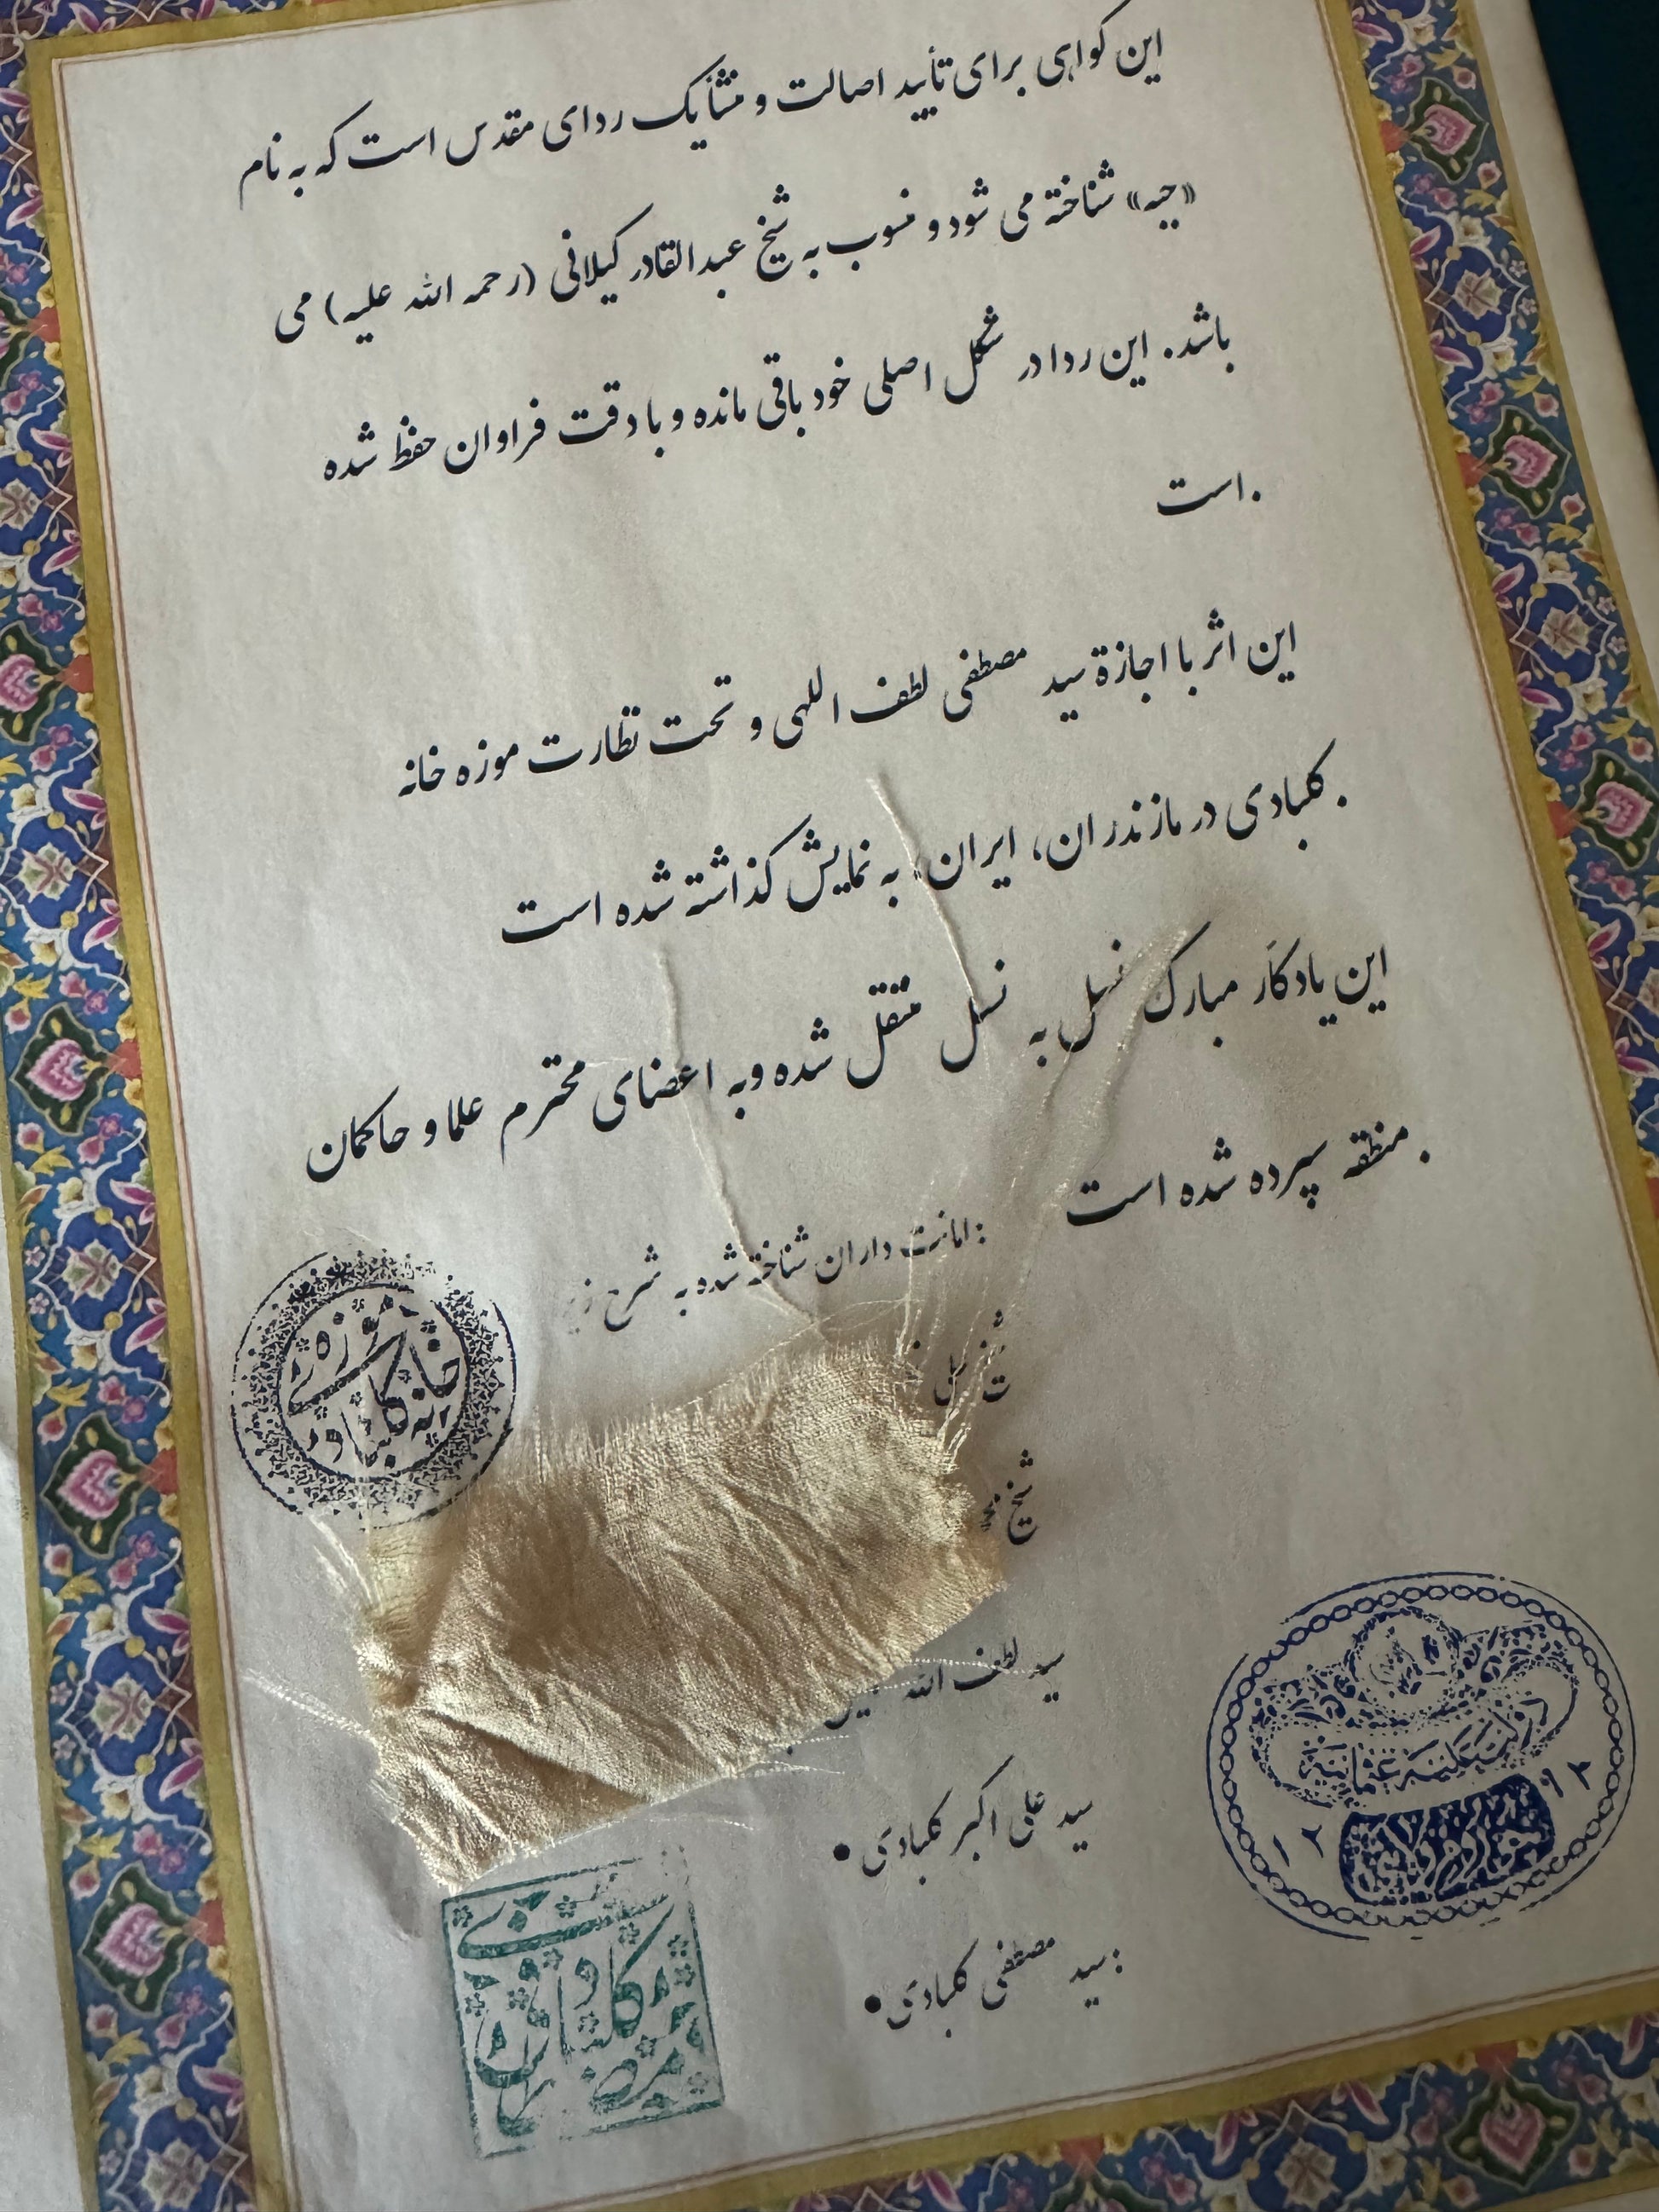 این گواهی برای تأیید اصالت و منشأ یک ردای مقدس است که به نام
«جبه» شناخته می شود و منسوب به شیخ عبدالقادر گیلانی (رحمه الله علیه) می
باشد. این ردا در شکل اصلی خود باقی مانده و با دقت فراوان حفظ شده
.است
این اثر با اجازة سید مصطفی لطف اللهی و تحت نظارت موزه خانه
.کلبادی در مازندران، ایران، به نمایش گذاشته شده است
این یادگار مبارک نسل به نسل منتقل شده و به اعضای محترم علما و حاکمان
.منطقه سپرده شده است
:امانت داران شناخته شده به شرح زیر
شیخ
سید لطف الله
سید علی اکبر کلبادی •
:سید مصطفی کلبادی •